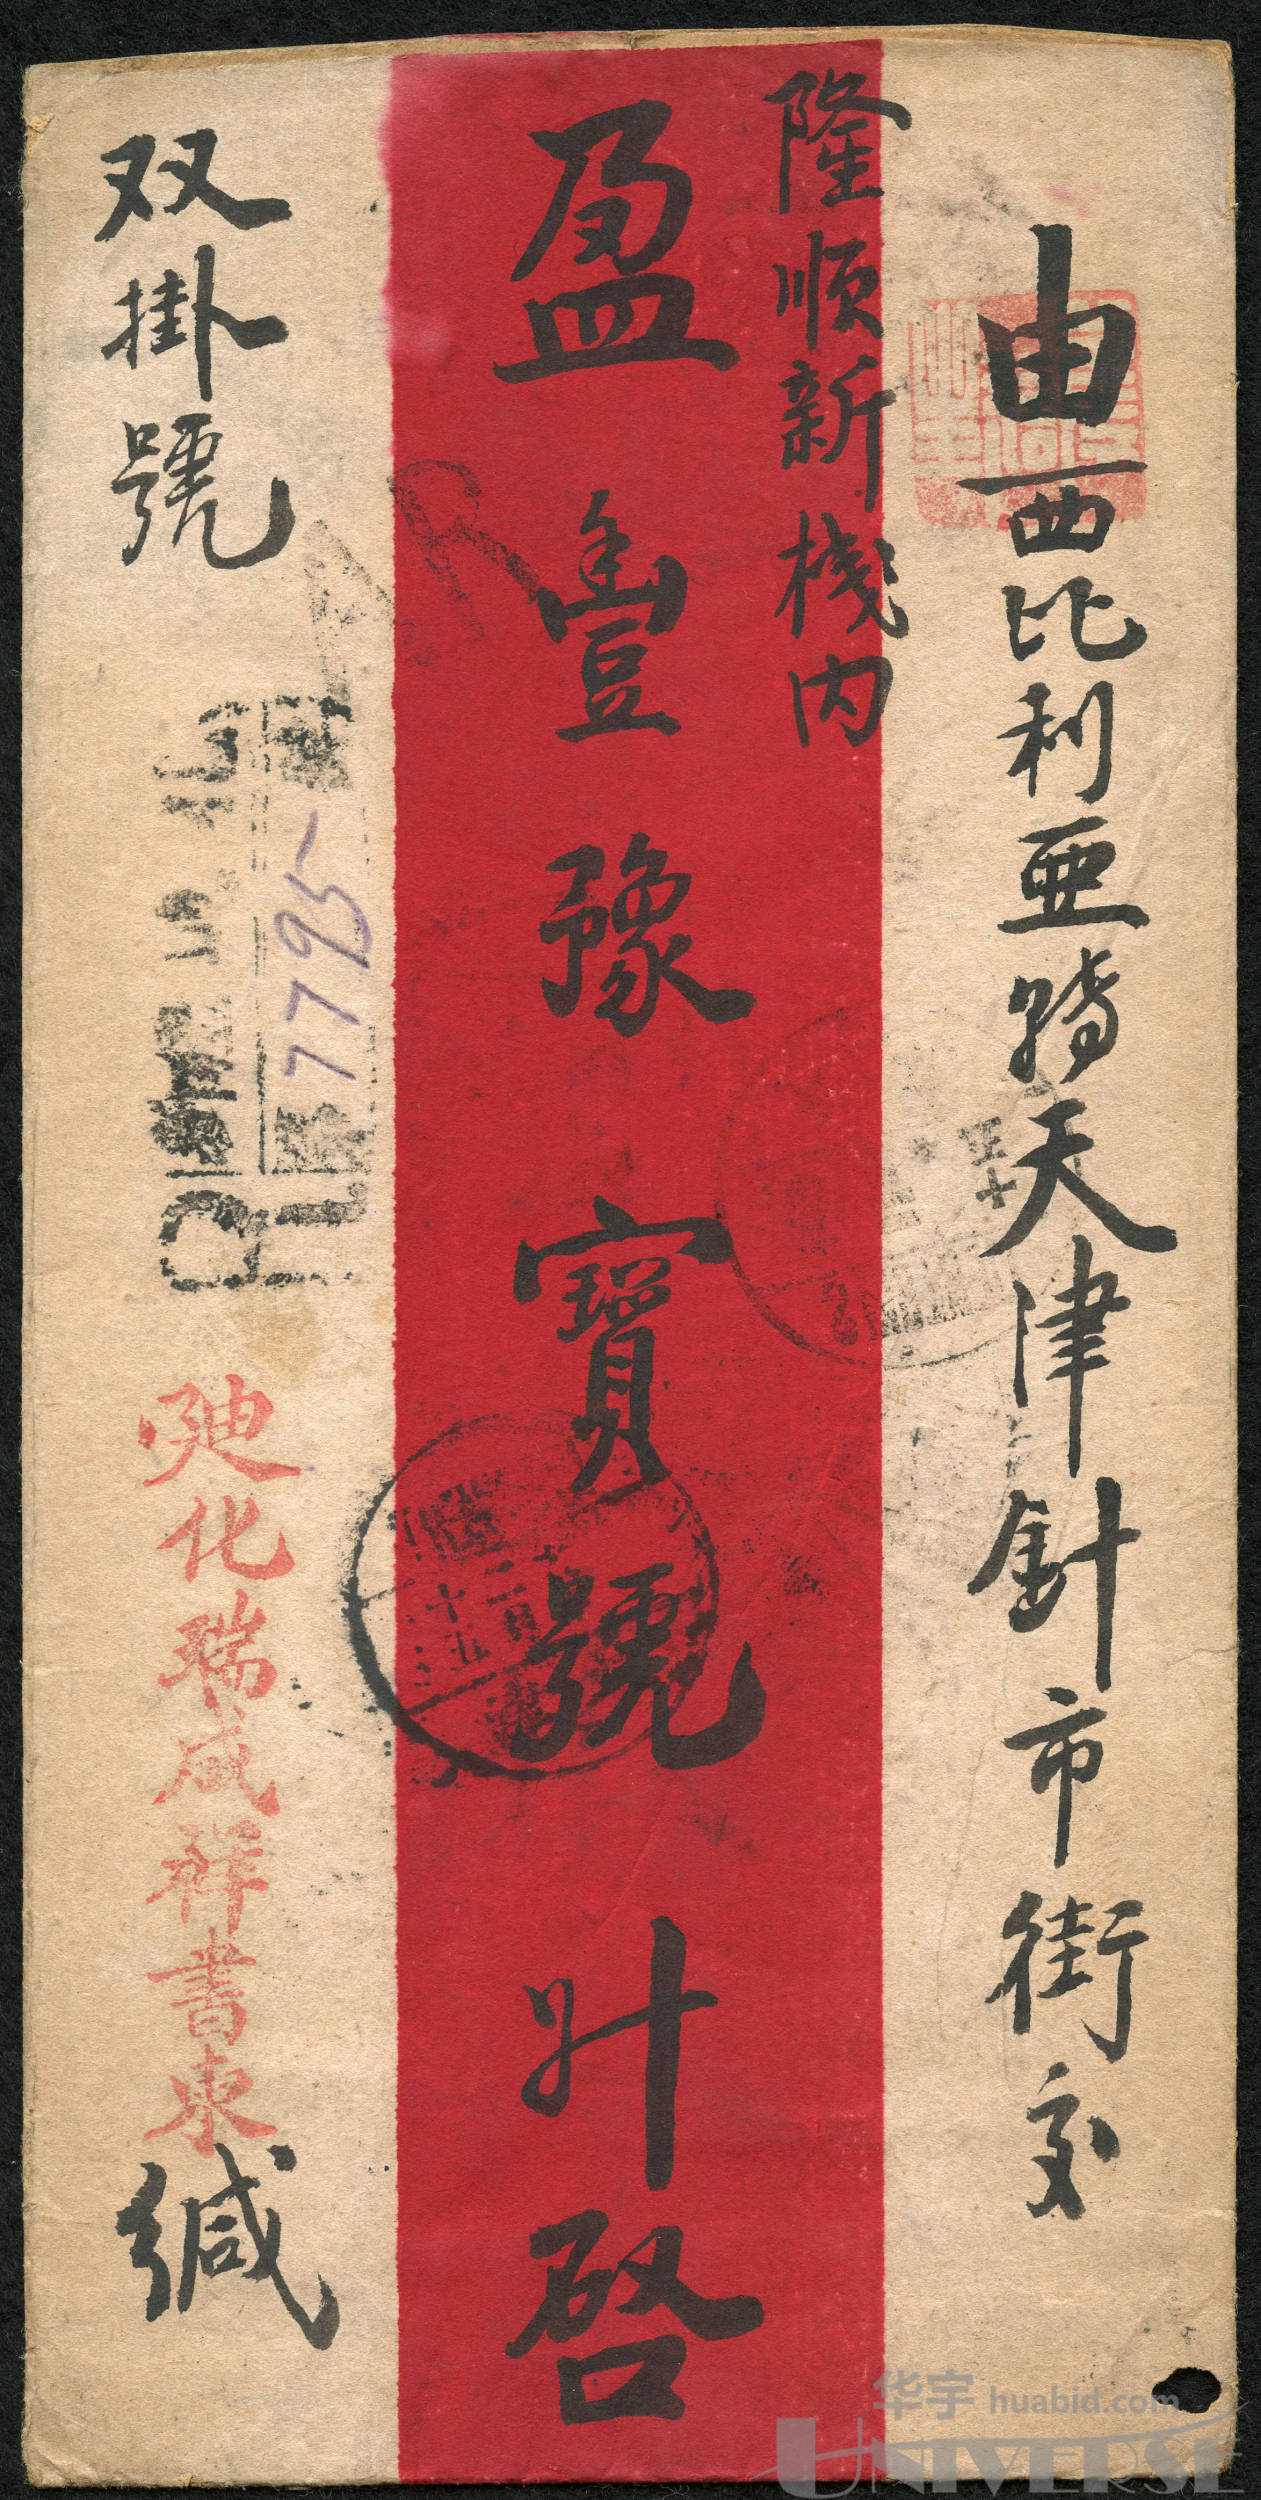 由西比利亞轉天津針市街交
隆順新棧内
盈豐豫寶號升啓
双掛號
AR
7795
二月
十五
迪化瑞成祥書柬
緘
华宇 huabid.com
UNIVERSE